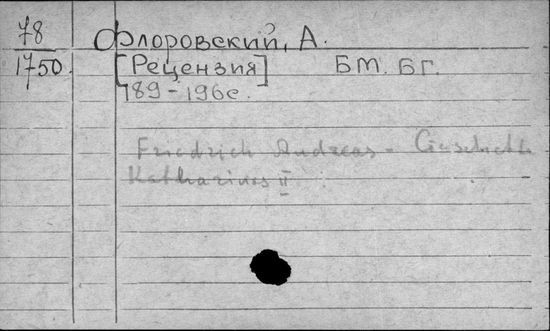 78 Флоровский, А.
1750. [Рецензия] БМ. БГ.
189-196с.
Friedrich Andreae -
Katharinas II